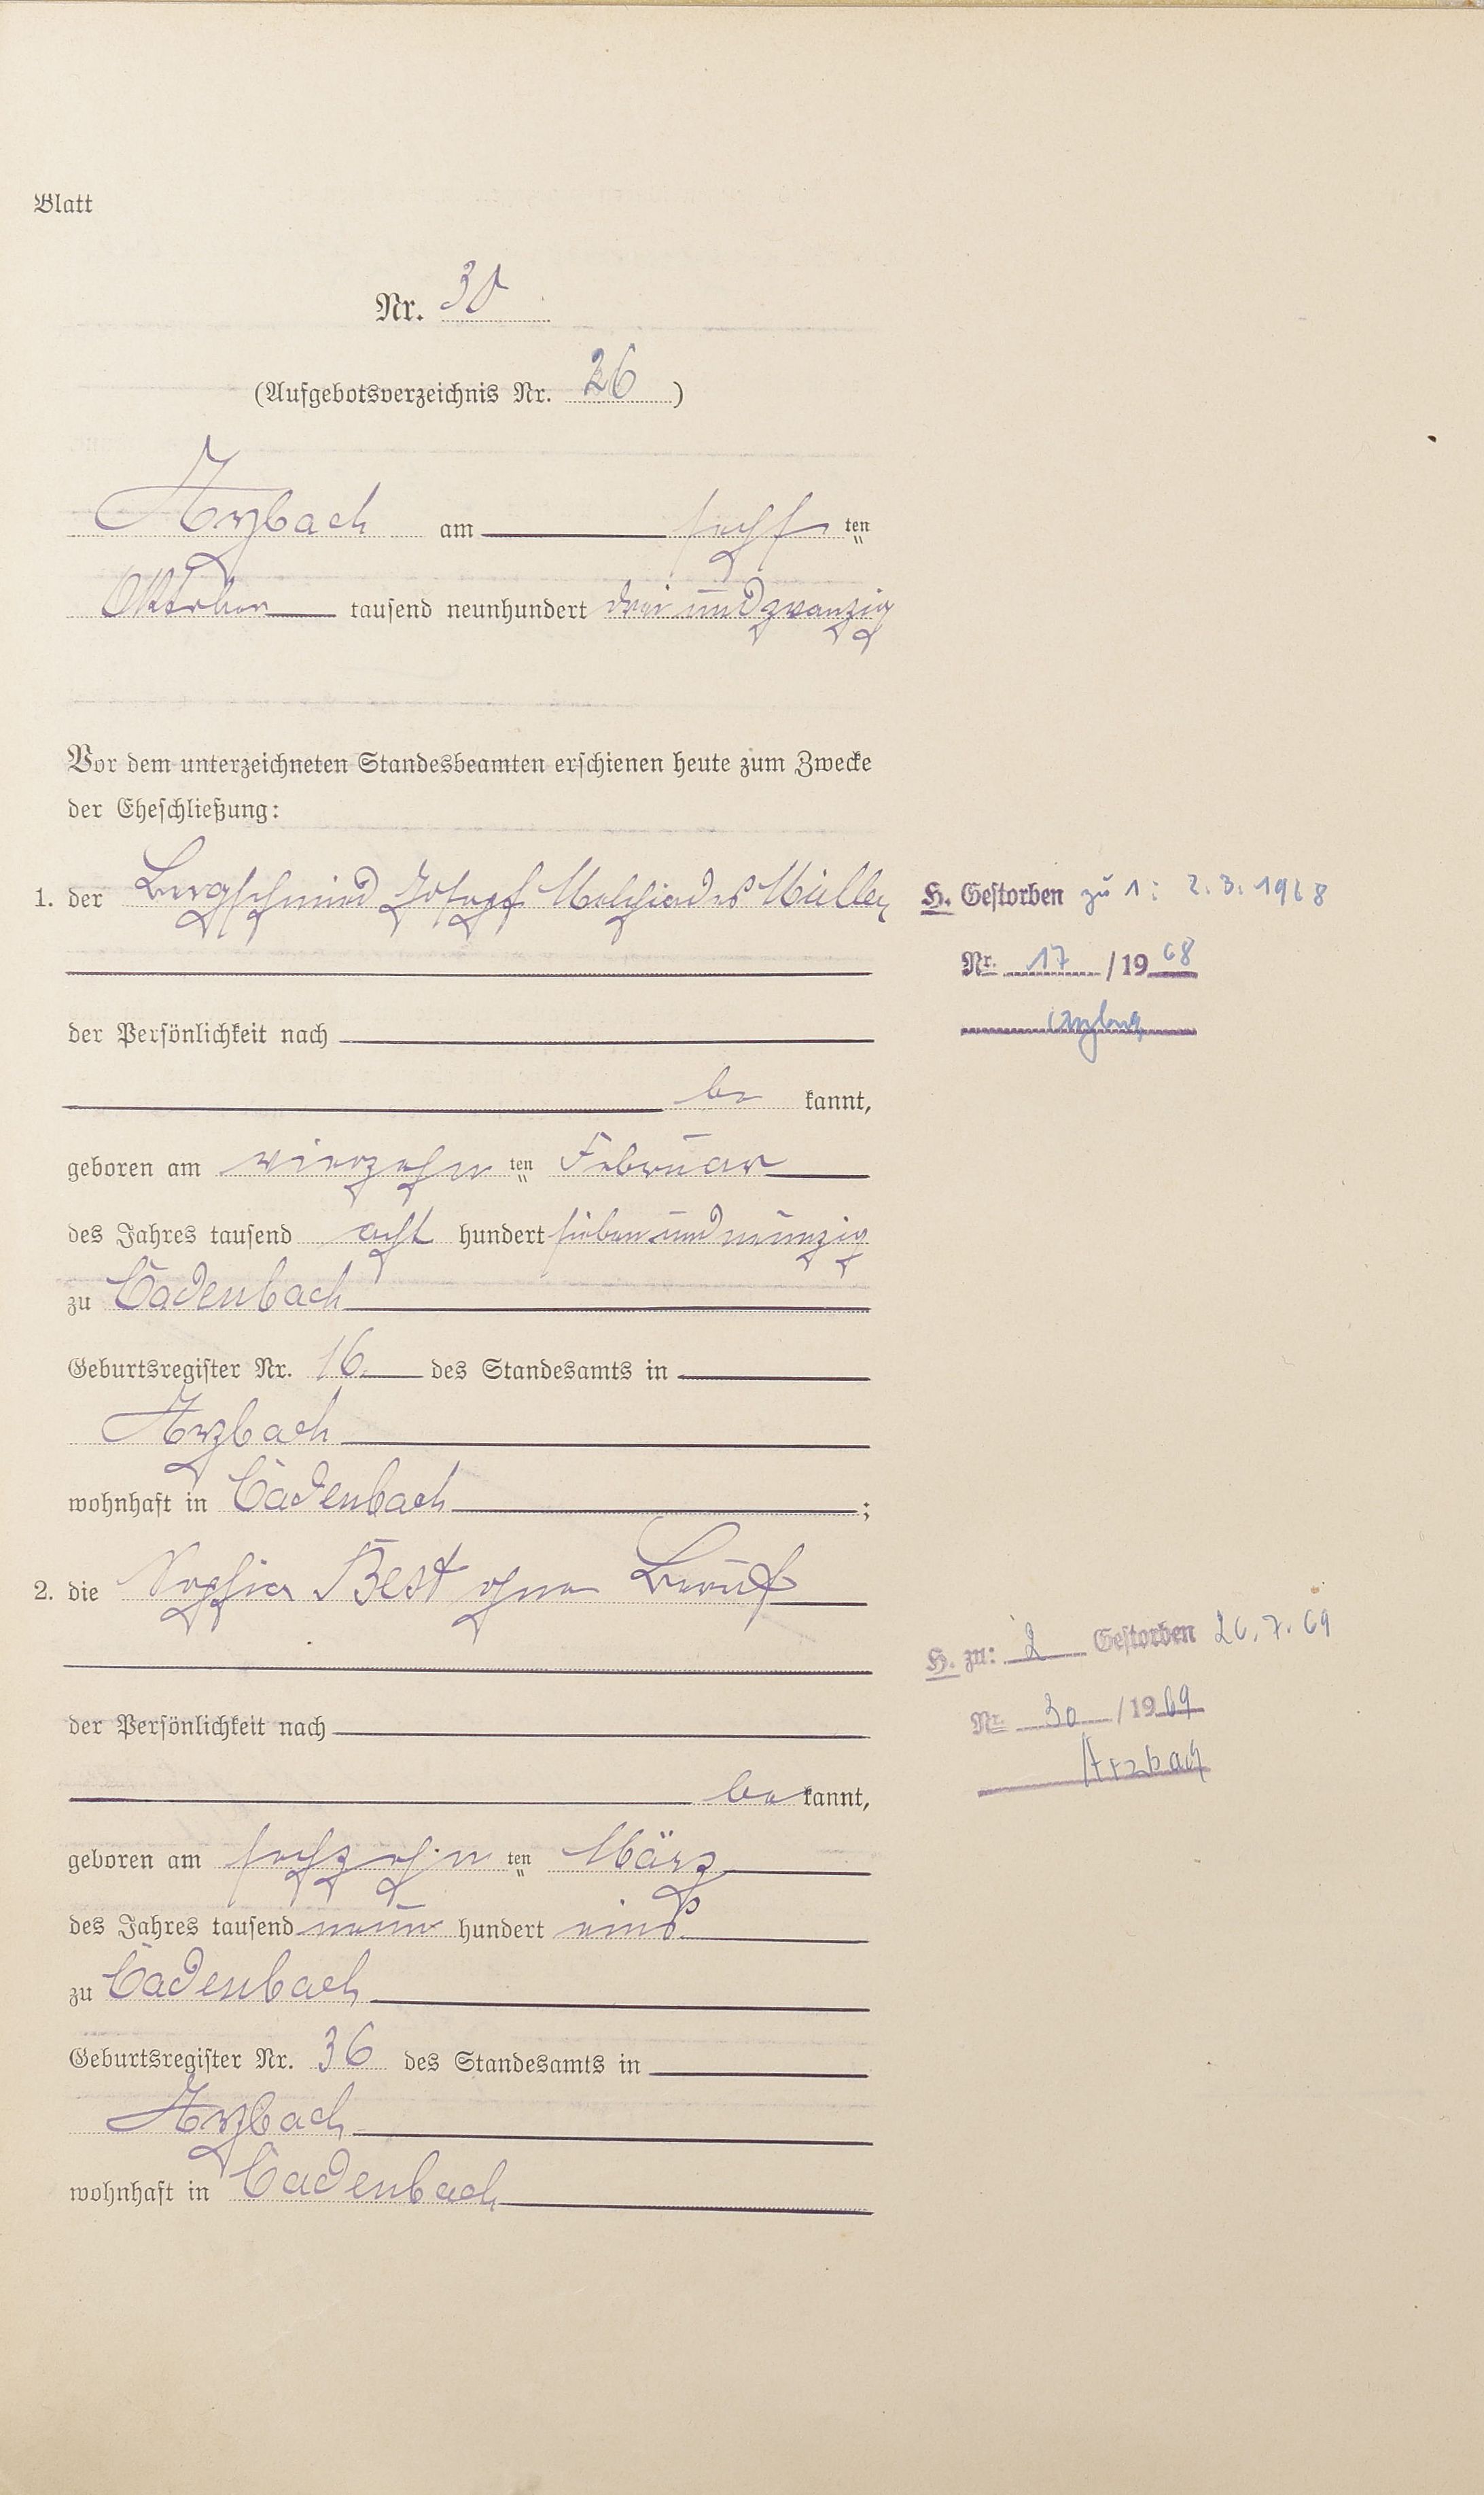 Blatt
Nr. 30
(Aufgebotsverzeichnis Nr. 26)
Arzbach am sechsten
Oktober tausend neunhundert dreiundzwanzig
Vor dem unterzeichneten Standesbeamten erschienen heute zum Zwecke
der Eheschließung:
1. der Bergschmied Josepf Melchiades Müller
H. Gestorben zu 1: 2.3.1968
Nr. 17 / 19 68
Arzbach
der Persönlichkeit nach
be kannt,
geboren am vierzehnten Februar
des Jahres tausend acht hundert siebenundneunzig
zu Cadenbach
Geburtsregister Nr. 16 des Standesamts in
Arzbach
wohnhaft in Cadenbach;
2. die Sophia Best ohne Beruf
H. zu: 2 Gestorben 26.7.69
Nr. 30 / 19 69
Arzbach
der Persönlichkeit nach
be kannt,
geboren am sechzehnten März
des Jahres tausend neun hundert eins
zu Cadenbach
Geburtsregister Nr. 36 des Standesamts in
Arzbach
wohnhaft in Cadenbach